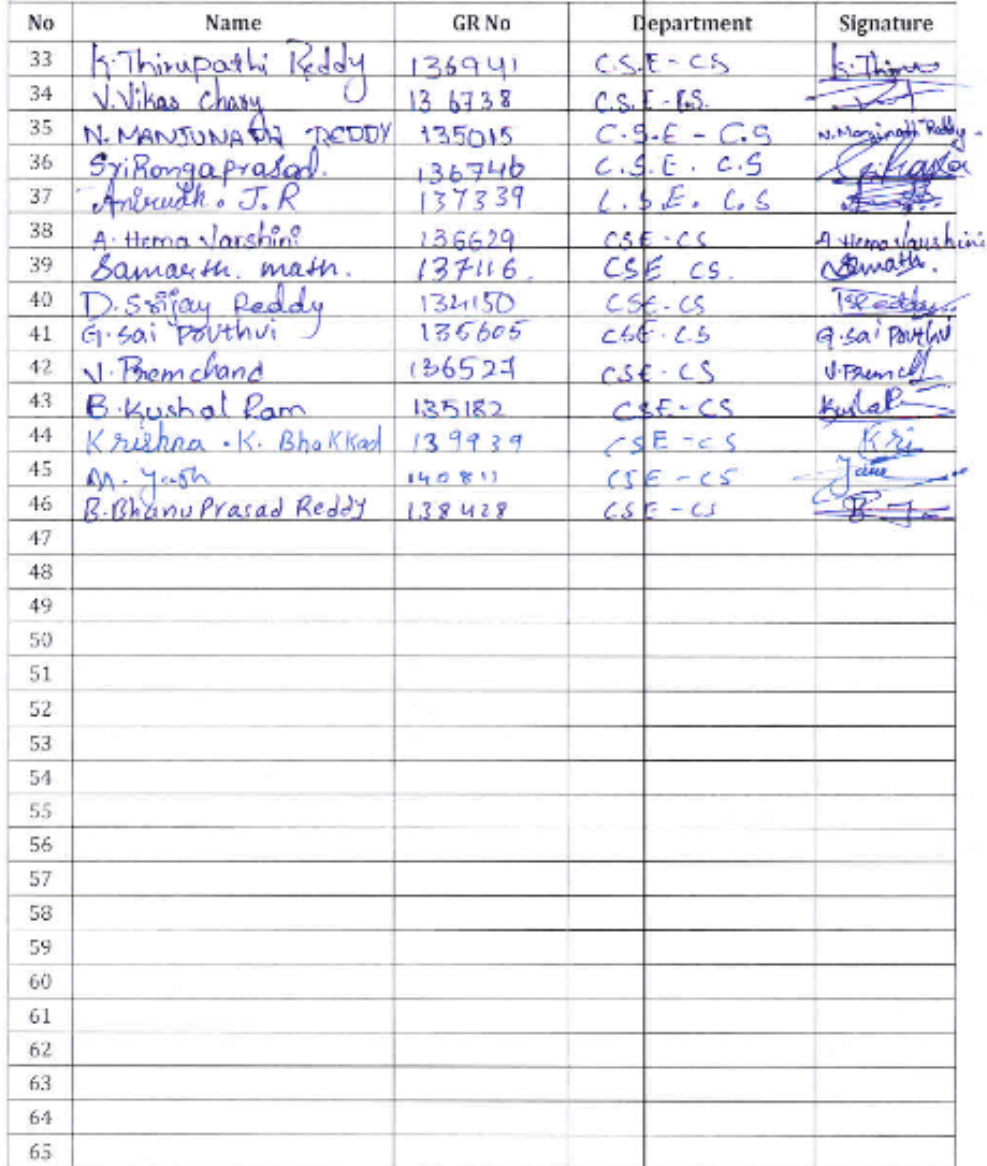 No Name GR No Department Signature
33 K.Thirupathi Reddy 136941 C.S.E - CS K.Thiru
34 V.Vikas Chary 136738 C.S.E - C.S.
35 N. MANJUNATH REDDY 135015 C.S.E - C.S N.Manjunath Reddy
36 SriRangaprasad. 136746 C.S.E. C.S
37 Anirudh. J.R 137339 C.S.E. C.S
38 A. Hema Varshini 136629 CSE-CS A Hema Varshini
39 Samarth. math. 137116. CSE CS.
40 D.Srijay Reddy 134150 CSE-CS
41 G.Sai Pouthvi 135605 CSE-CS G.Sai Pouthvi
42 V.Premchand 136527 CSE-CS V.Premch
43 B.Kushal Ram 135182 CSE-CS
44 Krishna .K. Bhakkad 139939 CSE-CS Kri
45 M. Yash 140811 CSE-CS
46 B.BhanuPrasad Reddy 138428 CSE-CS
47
48
49
50
51
52
53
54
55
56
57
58
59
60
61
62
63
64
65